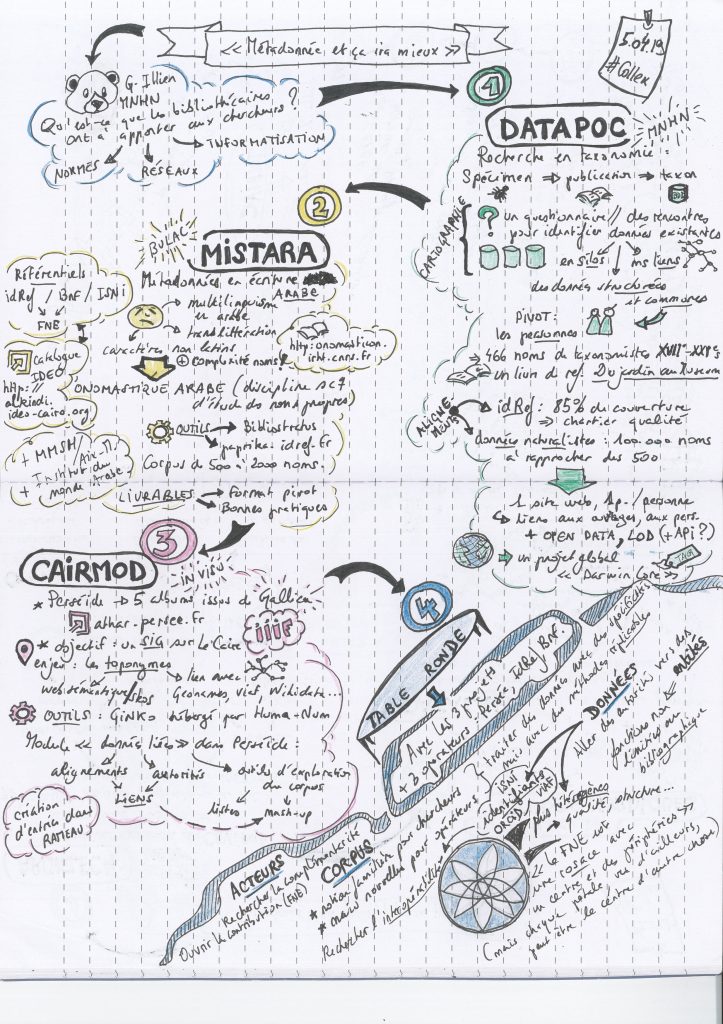 « Métadonnée et ça ira mieux »
5.04.19
#Collex
G. Illien
MNHN
Qu'est-ce que les bibliothécaires
ont à apporter aux chercheurs ?
NORMES
RÉSEAUX
INFORMATISATION
1
DATAPOC
MNHN
Recherche en taxonomie :
Spécimen ⇒ publication ⇒ taxon
CARTOGRAPHIE
? un questionnaire // des rencontres
pour identifier données existantes
en silos
ms liens
des données structurées
et communes
PIVOT :
les personnes
→ 466 noms de taxonomistes XVIIe-XXIe s
un livre de ref. Du jardin au Museum
ALIGNEMENTS
idRef : 85% de couverture
⇒ chantier qualité
données naturalistes : 100.000 noms
à rapprocher des 500
1 site web, 1p./personne
↳ liens aux ouvrages, aux pers.
+ OPEN DATA, LOD (+ API ?)
→ un projet global
« Darwin Core »
2
BULAC
MISTARA
Métadonnées en écriture
ARABE
→ multilinguisme
en arabe
→ translittération
caractères non latins
+ complexité noms !
http:onomasticon.
irht.cnrs.fr
ONOMASTIQUE ARABE (discipline
d'étude des noms propres)
OUTILS
→ Bibliostratus
→ paprika.idref.fr
Corpus de 500 à 2000 noms.
LIVRABLES
→ Format pivot
→ Bonnes pratiques
Référentiels
idRef / BNF / ISNI
FNE
Catalogue
IDEO
http://
alkindi.
ideo-cairo.org
+ MMSH/
Institut du
monde Arabe
3
CAIRMOD
INVISU
* Perséide → 5 albums issus de Gallica
athar.persee.fr
iiif
* objectif : un SIG sur Le Caire
enjeu : les toponymes
web sémantique/skos
lien avec
Geonames, viaf, Wikidata...
OUTILS : Ginko hébergé par Huma-Num
Module « données liées » dans Perséide :
alignements
autorités
outils d'exploration
du corpus
LIENS
listes
mash-up
création
d'entrées dans
RAMEAU
4
TABLE RONDE
Avec les 3 projets
+ 3 opérateurs : Persée, IdRef, BnF.
ACTEURS
Rechercher la complémentarité
Ouvrir la contribution (FNE)
CORPUS
* notion familière pour chercheurs
* mais nouvelle pour opérateurs
Rechercher l'interopérabilité
traiter des données avec des spécificités
mais avec des méthodes réplicables
DONNÉES
Aller des autorités vers des
entités
fonctions non
limitées au
bibliographique
ISNI
identifiants
ORCID
VIAF
plus hétérogènes
→ qualité, structure...
« le FNE est
une rosace avec
un centre et des périphéries »
(mais chaque pétale, vu d'ailleurs,
peut être le centre d'autre chose)